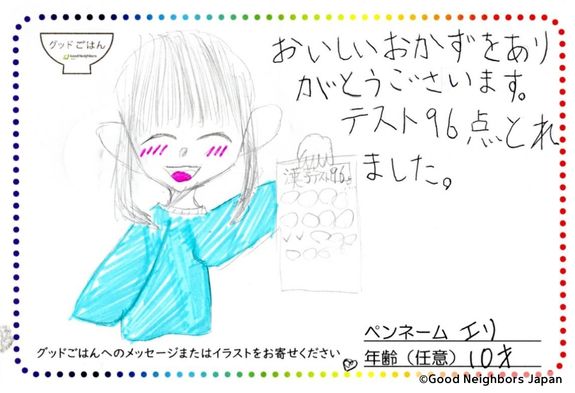 グッドごはん
Good Neighbors
おいしいおかずをあり
がとうございます。
テスト96点とれ
ました。
漢字テスト96点
ペンネーム エリ
年齢（任意） 10才
グッドごはんへのメッセージまたはイラストをお寄せください
©Good Neighbors Japan